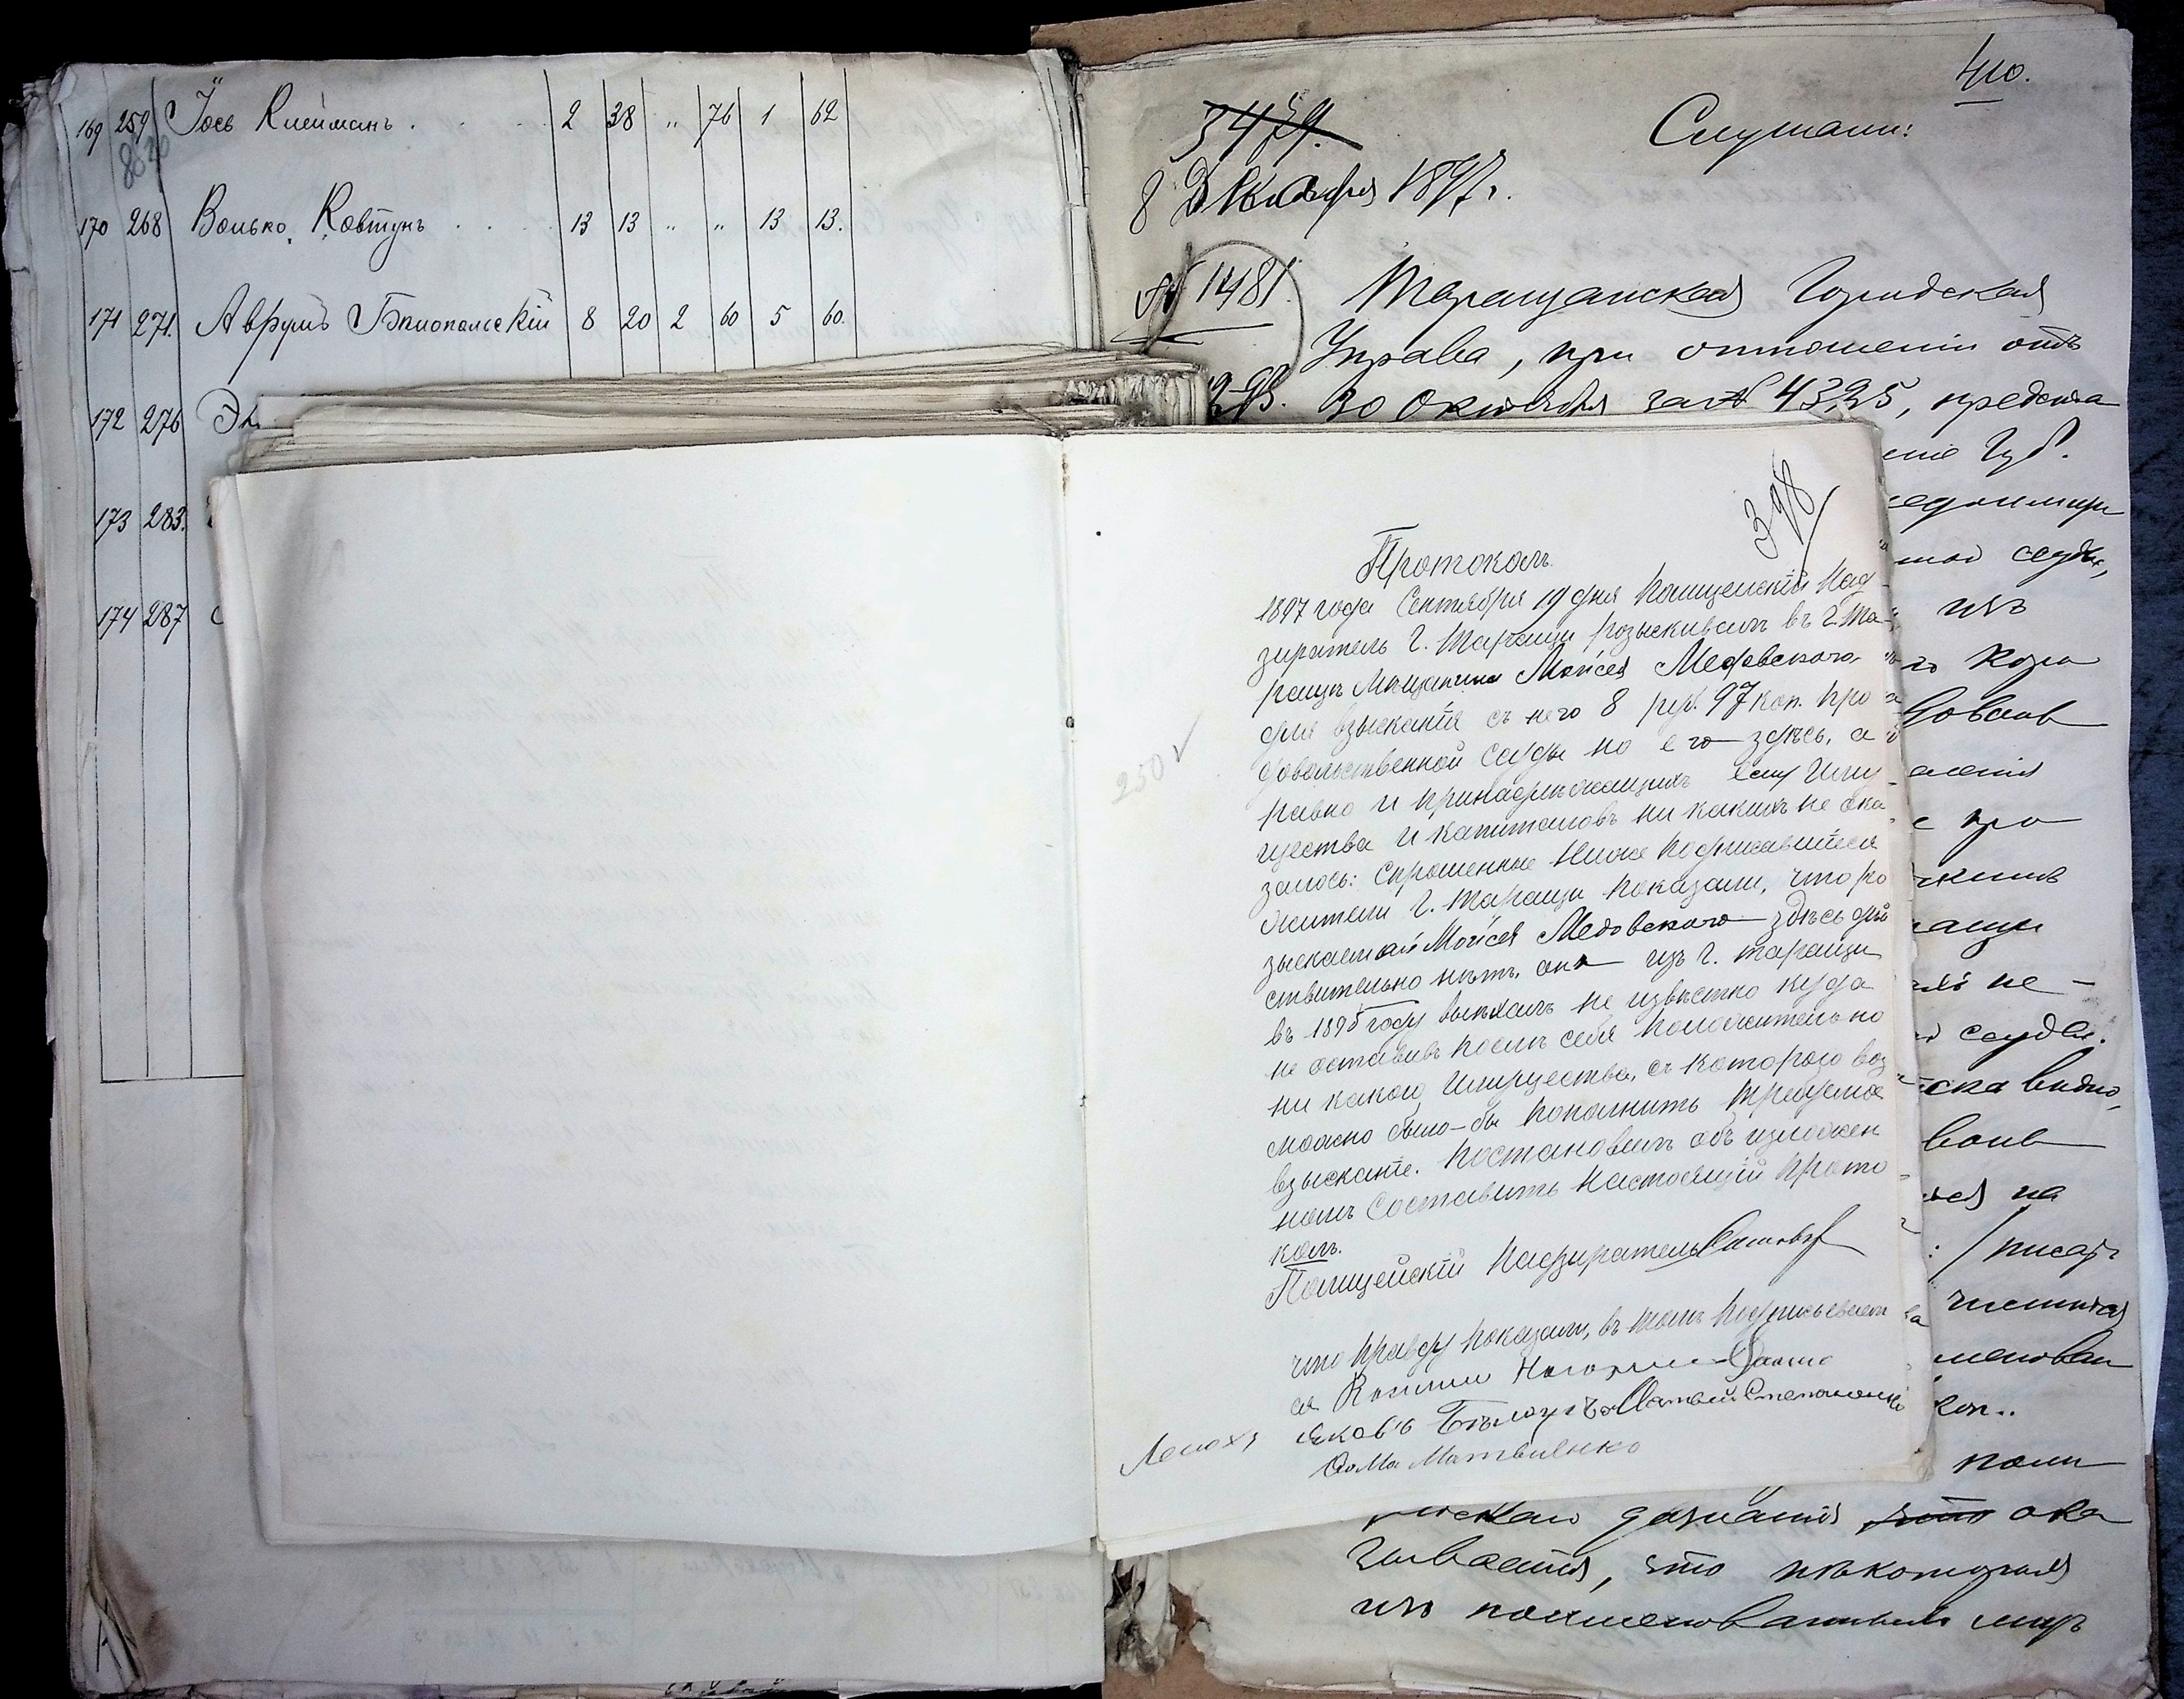 169 259 Іось Клейманъ . . . 2 38 " 76 1 62
170 268 Волько Ковтунъ . . . 13 13 " " 13 13.
171 271. Аврумъ Бѣлопольскій 8 20 2 60 5 60.
172 276
173 283.
174 287
410.
3479.
Слушали:
8 Декабря 1897 г.
№ 1481.
Таращанская Городская
Управа, при отношеніи отъ
30 Октября за № 4325, предста
Губ.
недоимщи
ссудѣ,
изъ
про
не-
ссудѣ.
видно,
на
писар
коп..
поли
дознанія что ока
зывается, что нѣкоторые
изъ поименованныхъ мѣщ
398
Протоколъ.
1897 года Сентября 19 дня Полицейскій Над-
зиратель г. Таращи розыскивалъ въ г. Та-
ращѣ Мѣщанина Мойсея Медовскаго,
для взысканія съ него 8 руб. 97 коп. про
довольственной ссуды но его здѣсь, а
равно и принадлежащихъ ему Иму-
щества и капиталовъ ни какихъ не ока-
залось: Спрошенные Ниже подписавшіеся
жители г. Таращи показали, что ро
зыскаемый Мойсея Медовскаго здѣсь дѣй
ствительно нѣтъ, онъ изъ г. Таращи
въ 1895 году выѣхалъ не извѣстно куда
не оставивъ послѣ себя положительно
ни какого Имущества, съ которого воз
можно было-бы пополнить требуемое
взысканіе. Постановилъ объ изложен
номъ Составить настоящій прото-
колъ.
Полицейскій Надзиратель
что правду показали, въ томъ подписываем
ся
Яковъ Матвей Степаненко
Фома Матвиенко
250 ✓